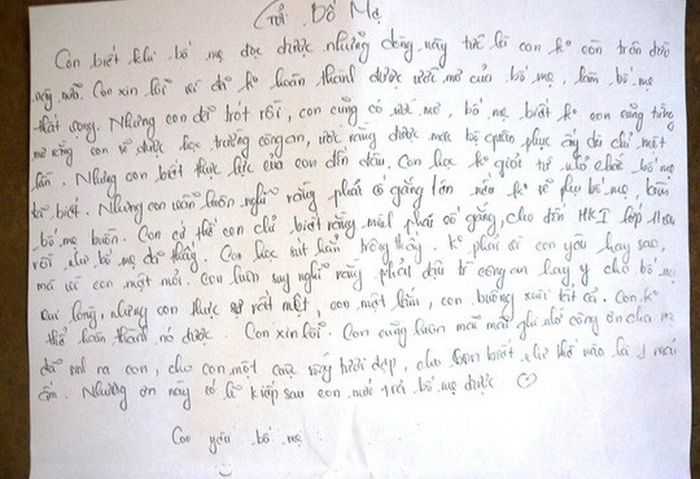 Gửi Bố Mẹ
Con biết khi bố mẹ đọc được những dòng này tức là con ko còn trên đời
này nữa. Con xin lỗi vì đã ko hoàn thành được ước mơ của bố mẹ, làm bố mẹ
thất vọng. Nhưng con đã trót rồi, con cũng có ước mơ, bố mẹ biết ko con cũng từng
mơ rằng con sẽ được học trường công an, ước rằng được mặc bộ quân phục ấy dù chỉ một
lần. Nhưng con biết thực lực của con đến đâu. Con học ko giỏi từ nhỏ chắc bố mẹ
biết. Nhưng con vẫn luôn nghĩ rằng phải cố gắng lên nếu ko sẽ phụ bố mẹ, làm
bố mẹ buồn. Con cứ thế con chỉ biết rằng mình phải cố gắng, cho đến HKI lớp 11
rồi như bố mẹ đã thấy. Con học sút hẳn trông thấy. Ko phải vì con yêu hay sao,
mà vì con mệt mỏi. Con luôn suy nghĩ rằng phải đậu trường công an hay y cho bố mẹ
vui lòng, nhưng con thực sự rất mệt, con mệt lắm, con buông xuôi tất cả. Con ko
thể hoàn thành nó được. Con xin lỗi. Con cũng luôn mãi mãi ghi nhớ công ơn cha mẹ
đã sinh ra con, cho con một cuộc sống tươi đẹp, cho con biết như thế nào là 1 mái
ấm. Nhưng ơn này có lẽ kiếp sau con mới trả bố mẹ được. ♡
Con yêu bố mẹ